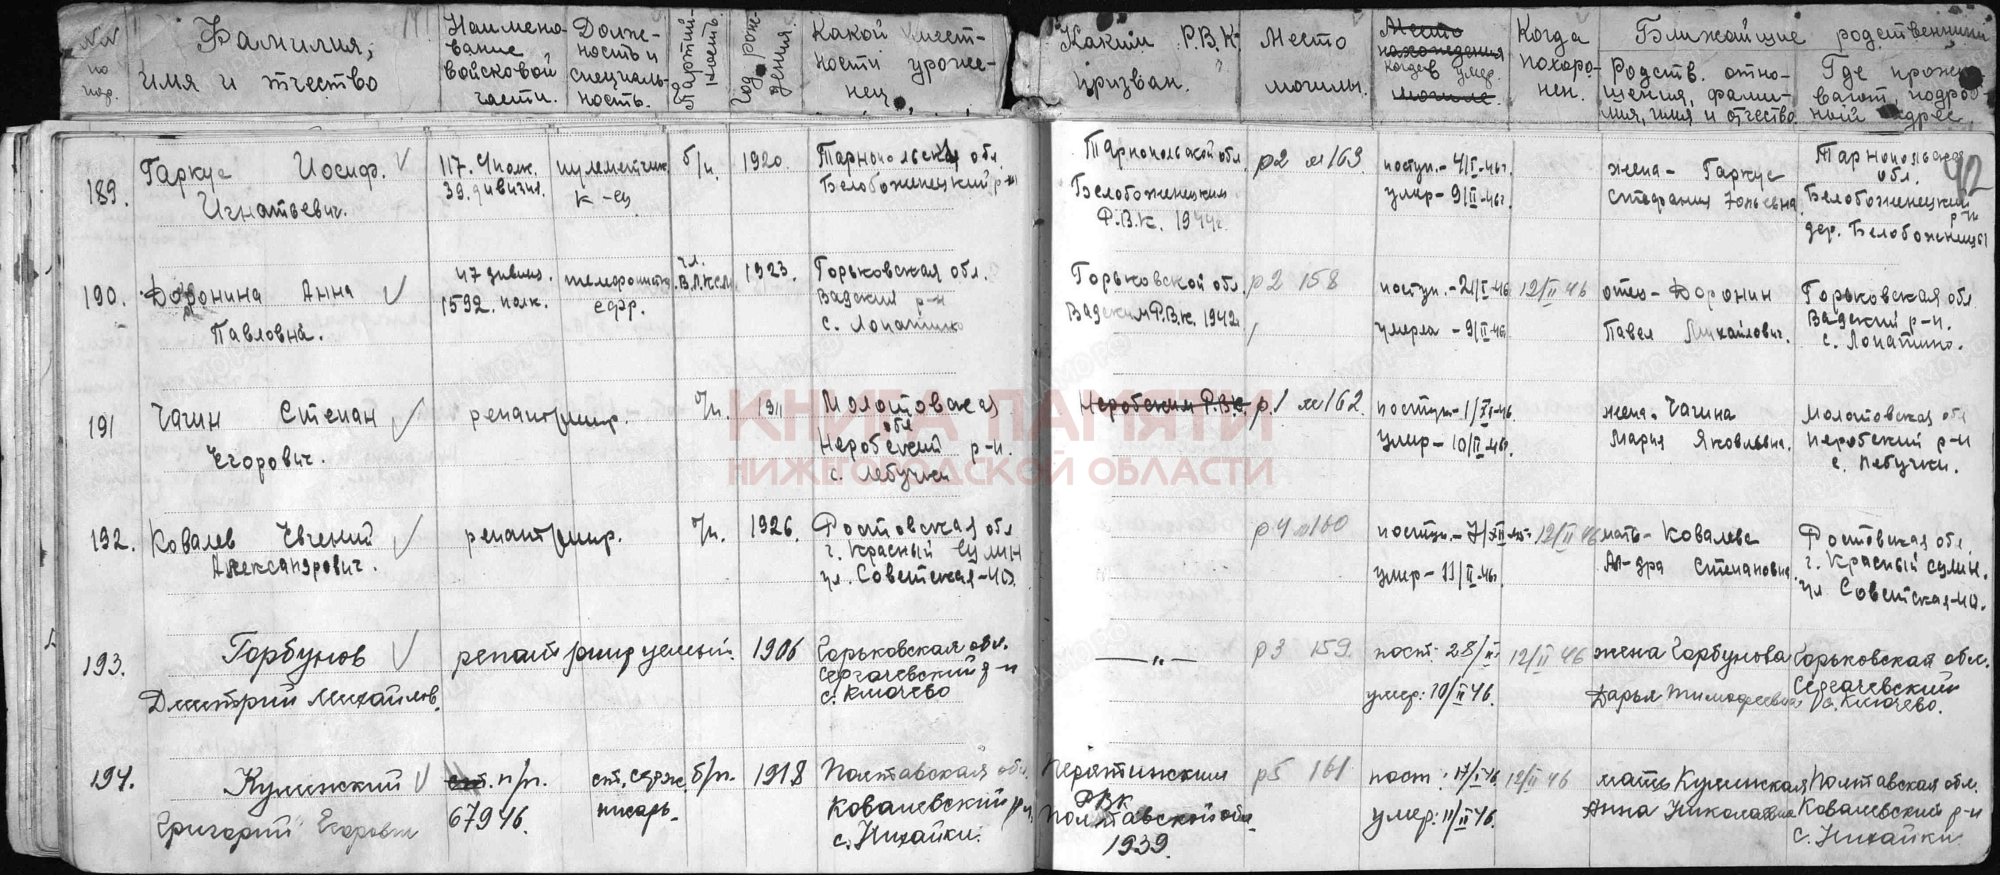 NN по пор.
Фамилия, имя и отчество
Наимено-вание войсковой части.
Долж-ность и специаль-ность.
Партий-ность.
Год рож-дения.
Какой мест-ности уроже-нец
Каким Р.В.К. призван.
Место могилы.
Место нахождения
когда умер.
Когда похоро-нен.
Ближайшие родственники
Родств. отно-шения, фами-лия, имя и отчество
Где прожи-вают, подроб-ный адрес
42
189.
Гаркус Иосиф.
Игнатьевич.
117. полк.
39. дивизия.
пулеметчик
к-ец
б/п.
1920.
Тарнопольская обл.
Белобоженецкий р-н
Тарнопольской обл
Белобоженецким
Р.В.К. 1944г.
р2 м 163
поступ.- 4/II-46г.
умер- 9/II-46г.
жена- Гаркус
Стефания
Тарнопольская
обл.
Белобоженецкий
р-н
дер. Белобоженицы
190.
Доронина Анна
Павловна.
47 дивиз.
1592. полк.
телефонистка
ефр.
чл.
В.Л.К.С.М.
1923.
Горьковская обл.
Вадский р-н
с. Лопатино
Горьковской обл.
Вадским Р.В.К. 1942г
р2 158
поступ.-
умерла - 9/II-46г.
12/II 46
отец- Доронин
Павел Михайлович.
Горьковская обл
Вадский р-н.
с. Лопатино.
191
Чагин Степан
Егорович.
репатриир.
б/п.
1911
Молотовская
обл
Неробский р-н.
с. Лебучки
Неробским Р.В.К.
р.1 м 162.
умер- 10/II-46г.
жена- Чагина
Мария Яковлевна.
Молотовская обл
Неробский р-н
с. Лебучки.
192.
Ковалев Евгений
Александрович.
репатриир.
б/п.
1926.
Ростовская обл
г. Красный Сулин
ул. Советская-40.
р4 м160
умер- 11/II-46г
12/II 46
мать- Ковалева
Ал-дра Степановна
Ростовская обл.
г. Красный Сулин.
ул Советская-40.
193.
Горбунов
Дмитрий Михайлов.
репатриируемый.
1906
Горьковская обл.
Сергачевский р-н
с. Ключево
— „ —
р3 159.
умер: 10/II 46.
12/II 46
жена Горбунова
Дарья Тимофеевна
Горьковская обл.
Сергачевский
с. Ключево.
194.
Кулинский
Григорий Егорович
п/п.
67946.
ст. серж
писарь
б/п.
1918
Полтавская обл.
Ковалевский р-н,
с. Нихайки.
Пирятинским
РВК
Полтавской обл
1939.
р5 161
пост: 17/I 46
умер: 11/II 46.
12/II 46
мать Кулинская
Анна Николаевна
Полтавская обл.
Ковалевский р-н
с. Нихайки
КНИГА ПАМЯТИ
НИЖЕГОРОДСКОЙ ОБЛАСТИ